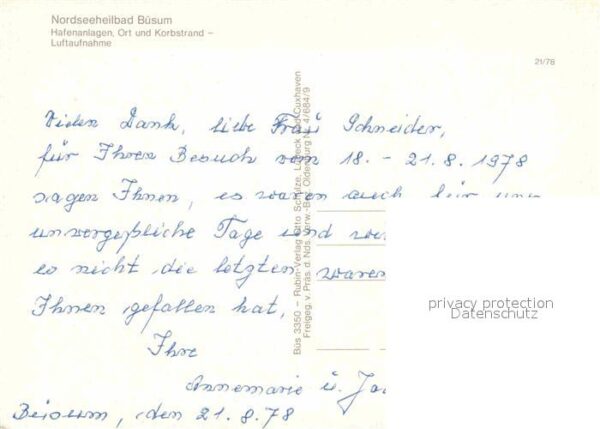 Nordseeheilbad Büsum
Hafenanlagen, Ort und Korbstrand –
Luftaufnahme
21/78
Vielen Dank, liebe Frau Schneider,
für Ihren Besuch vom 18. - 21.8.1978
sagen Ihnen, es waren auch für uns
unvergeßliche Tage und
es nicht die letzten waren
Ihnen gefallen hat,
Ihre
Annemarie u.
Büsum, den 21.8.78
Büs 3350 – Rubin-Verlag Otto Schulze, Lübeck und Cuxhaven
Freigeg. v. Präs. d. Nds. Verw.-Bez. Oldenburg Nr. 4/684/9
privacy protection
Datenschutz